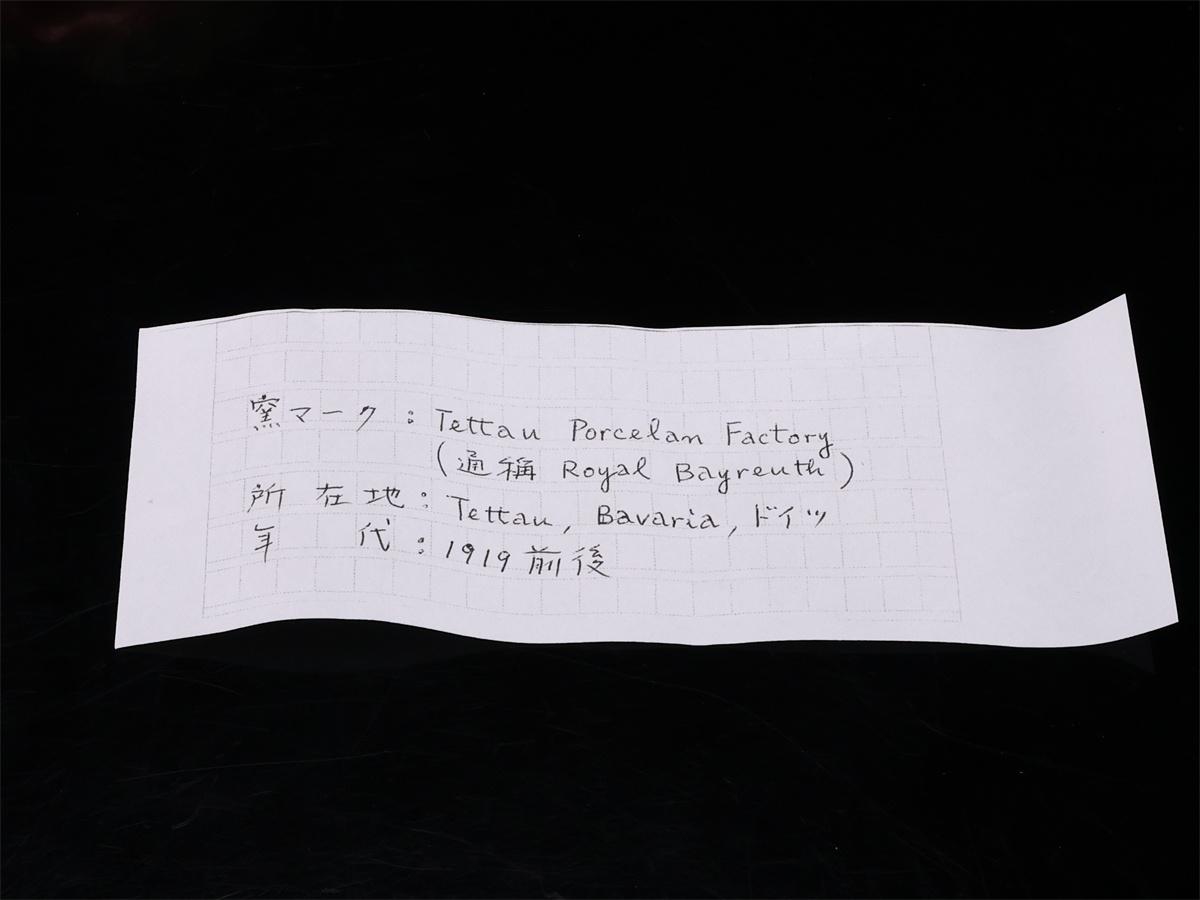 窯マーク：Tettau Porcelan Factory
(通稱 Royal Bayreuth)
所在地：Tettau, Bavaria, ドイツ
年代：1919前後